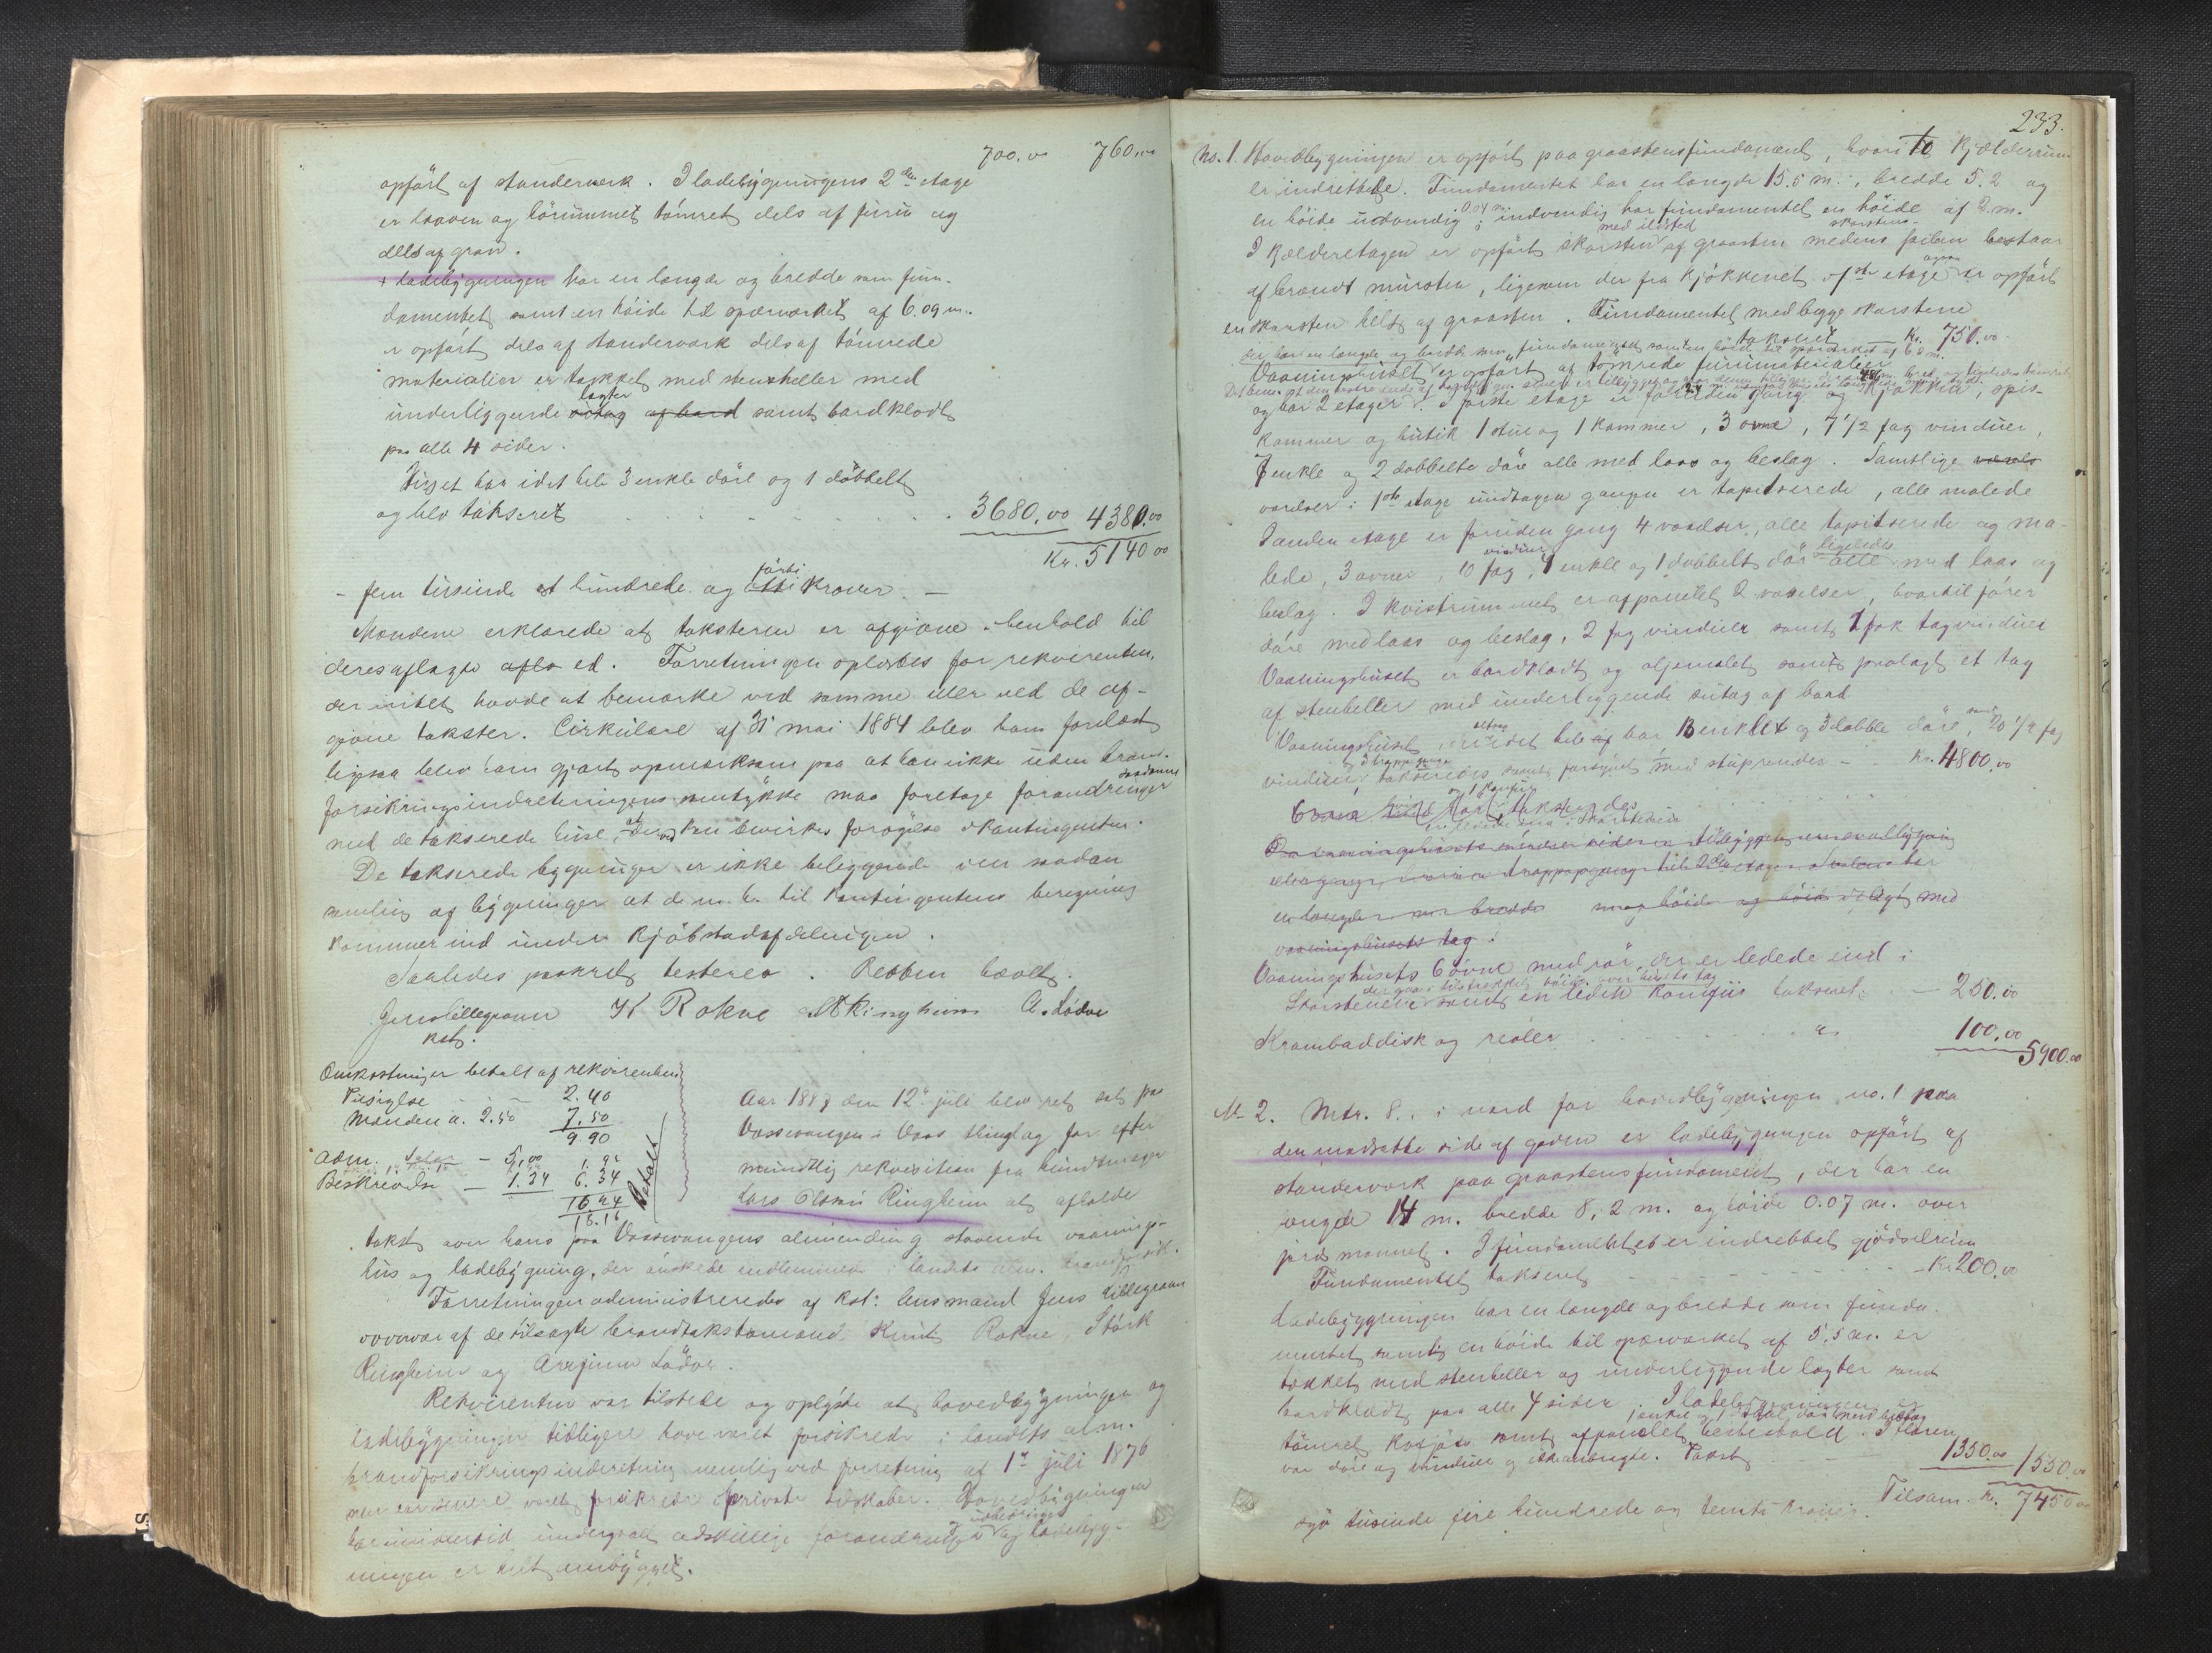 700.00 760.00
opført af standerverk. I ladebygningens 2den etage
er laaven og tømret dels af furu og
dels af gran.
Ladebygningen har en længde og bredde som fun-
damentet samt en höide til sperværket af 6.09 m.
er opført dels af standerværk dels af tömrede
materialier er tækket med stenheller med
underliggende lægter samt bordklædt
paa alle 4 sider.
Huset har i det hele 3 enkle döre og 1 dobbelt
og blev takseret 3680.00 4380.00
Kr. 5140.00
- fem tusinde et hundrede og förti kroner. -
Mændene erklærede at taksterne er afgivne i henhold til
deres aflagte ed. Forretningen oplæstes for rekvirenten,
der intet havde at bemærke ved samme eller ved de af-
givne takster. Cirkulære af 31 mai 1884 blev ham forelæst
ligesaa blev han gjort opmærksom paa at han ikke uden brand-
forsikringsindretningens samtykke maa foretage saadanne forandringer
med de takserede huse, at derved kan bevirkes forøgelse i kontingenten.
De takserede bygninger er ikke beliggende i en saadan
samling af bygninger at de m. h. til kontingentens beregning
kommer ind under kjöbstadafdelingen.
Saaledes passeret testeres. Retten hævet.
Jens Lillegraven K Rokne Ringheim A. Lødve
kst.
Omkostninger betalt af rekvirenten
Tilsigelse - - 2.40
Mændene a. 2.50 7.50
9.90
Adm. - 5.00
Beskrivelse - 1.34 6.34
16.24
18.16
Betalt
Aar 1889 den 12te juli blev ret sat paa
Vossevangen i Voss thinglag for efter
mundtlig rekvisition fra
Lars Olsen Ringheim at afholde
takst over hans paa Vossevangens almending staaende vaanings-
hus og ladebygning, der önskede indlemmes i landets alm. brandforsik.
Forretningen administreredes af kst. lensmand Jens Lillegraven
overvar af de tilsagte brandtakstmænd Knut Rokne, Størk
Ringheim og Lødve.
Rekvirenten var tilstede og oplyste at hovedbygningen og
ladebygningen tidligere have været forsikrede i landets alm.
brandforsikringsindretning nemlig ved forretning af 1ste juli 1876
men har senere været forsikrede i private selskaber. Hovedbygningen
har i den tid undergaaet adskillige forandringer og udbedringer og ladebyg-
ningen er helt ombygget.
233.
No. 1. Hovedbygningen er opført paa graastensfundament, hvori to kjælderrum
er indrettede. Fundamentet har en længde 15.5 m., bredde 5.2 og
en höide udvendig 0.04 m. indvendig har fundamentet en höide af 2 m.
I kjælderetagen er opført skorsten med ildsted af graasten medens skorstens- piben bestaar
af brændt mursten, ligesom der fra kjökkenet i 1ste etage er opført
en skorsten helt af graasten. Fundamentet med begge skorstene
takseret - Kr. 750.00
Det har en længde og bredde som fundamentet samt en höide til sperværket af 6.8 m.
Vaaningshuset er opført af tømrede furumaterialier
og har 2 etager. I förste etage er foruden gang og kjøkken, spis-
kammer og butik 1 stue og 1 kammer, 3 ovne, 7 1/2 fag vinduer,
7 enkle og 2 dobbelte döre alle med laas og beslag. Samtlige
værelser i 1ste etage undtagen gangen er tapitserede, alle malede
I anden etage er foruden gang 4 værelser, alle tapitserede og ma-
lede, 3 ovner, 10 fag vinduer, 4 enkle og 1 dobbelt dör ligeledes med laas og
beslag. I kvistrummet er afpanelet 2 værelser, hvortil förer
döre med laas og beslag, 2 fag vinduer samt 1 fag tagvinduer
Vaaningshuset er bordklædt og oljemalet samt paalagt et tag
af stenheller med underliggende sutag af bord
Vaaningshuset i det hele har 13 enkle og 3 dobble döre, samt 20 1/2 fag
vinduer, takseredes samt forsynet med stuprender - Kr. 4800.00
vaaningshusets tag.
Vaaningshusets 6 ovne med rör, der er ledede ind i
Skorstenene samt en komfur takseret - 250.00
Krambaddisk og reoler " 100.00
5900.00
No 2. Mtr. 8. i nord for hovedbygningen no. 1 paa
den modsatte side af gaden er ladebygningen opført af
standerverk paa graastensfundament, der har en
længde 14 m. bredde 8,2 m. og höide 0.07 m. over
jordsmonnet. I fundamentet er indrettet gjödselrum
Fundamentet takseret - Kr 200.00
Ladebygningen har en længde og bredde som funda-
mentet samt en höide til sperværket af 5,5 m. er
tækket med stenheller og underliggende lægter samt
bordklædt paa alle 4 sider. I ladebygningen er
tömret samt afpanelet hestestald. I
var döre og vinduer ikke anbragte. Takst - 1350.00 1550.00
Tilsam. Kr. 7450.00
syv tusinde fire hundrede og femti kroner.